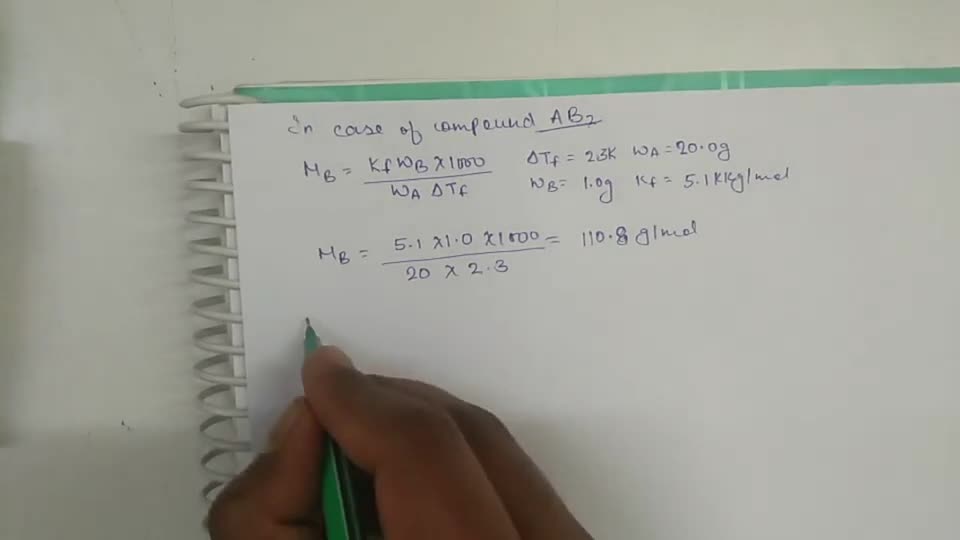 In case of compound AB2
MB = Kf WB x 1000 / WA ΔTf    ΔTf = 2.3K WA = 20.0g
WB = 1.0g Kf = 5.1 KKg/mol
MB = 5.1 x 1.0 x 1000 / 20 x 2.3 = 110.8 g/mol